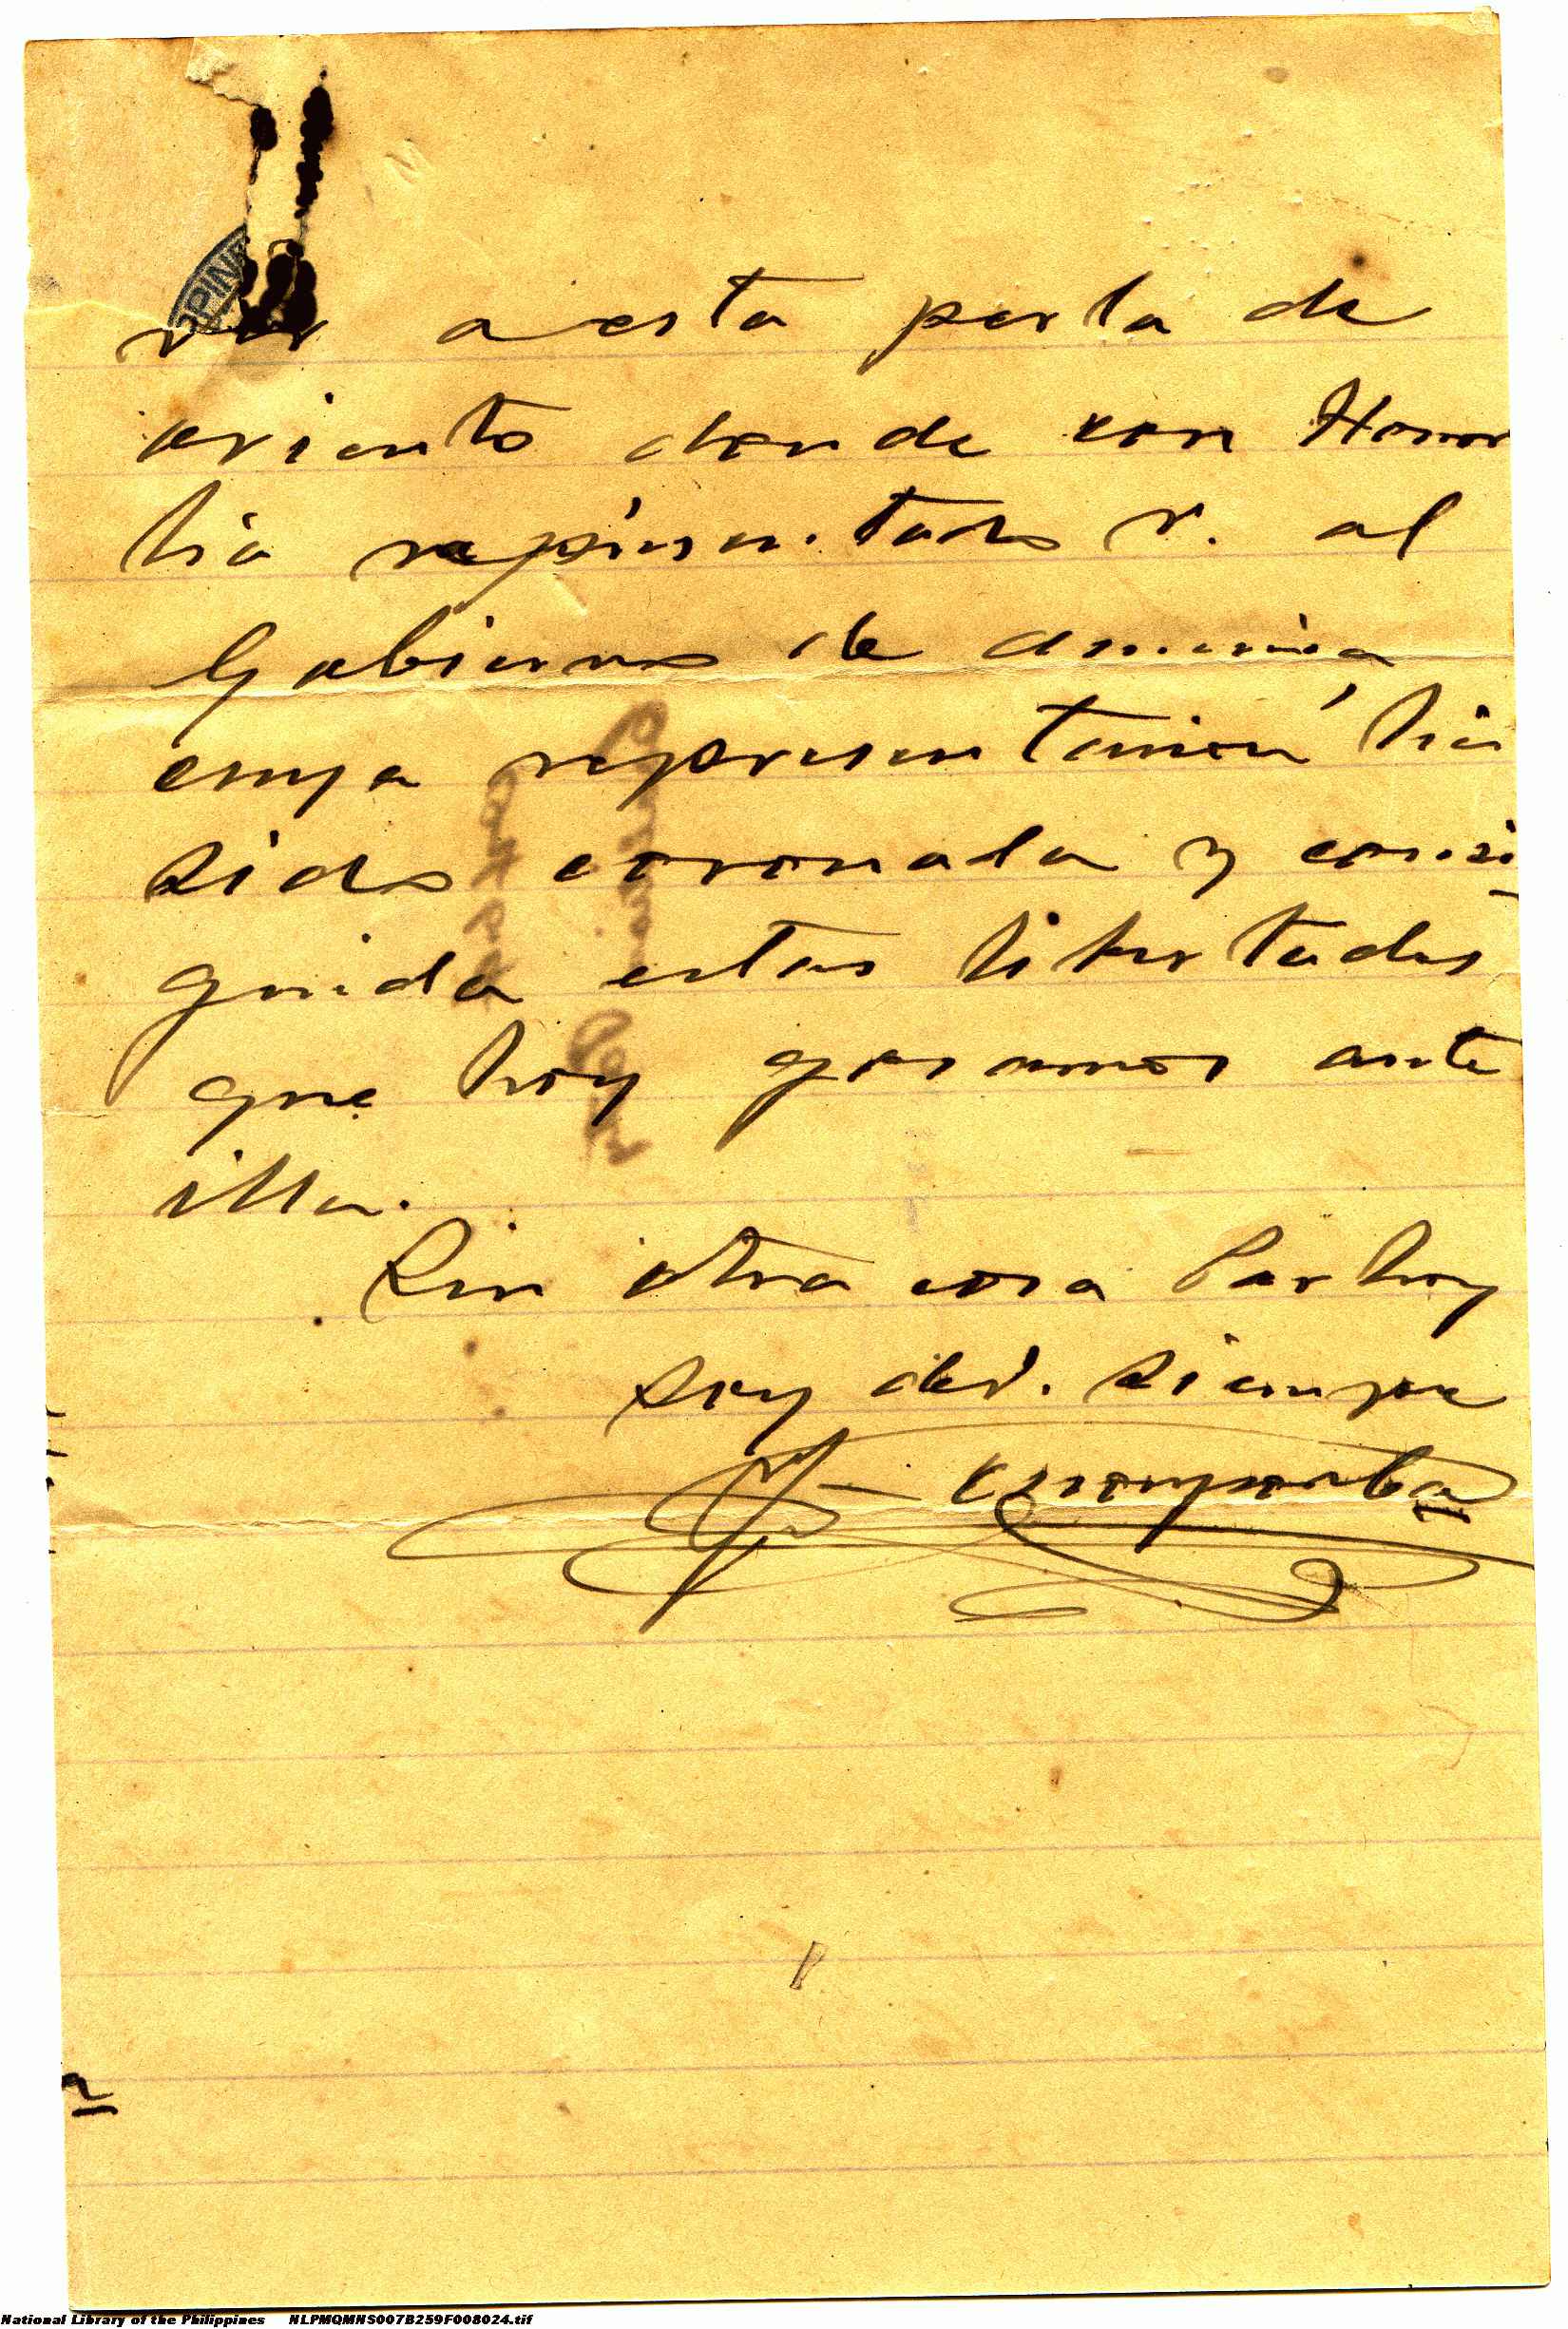 a esta perla de
oriente donde con Honor
ha representado V. al
Gobierno de america
cuya representacion ha
sido coronada y consi
guida estas libertades
que hoy gosamos ante
illa.
Sin otra cosa Por hoy
soy de V. siempre
PPINE
National Library of the Philippines NLPMQMNS007B259F008024.tif